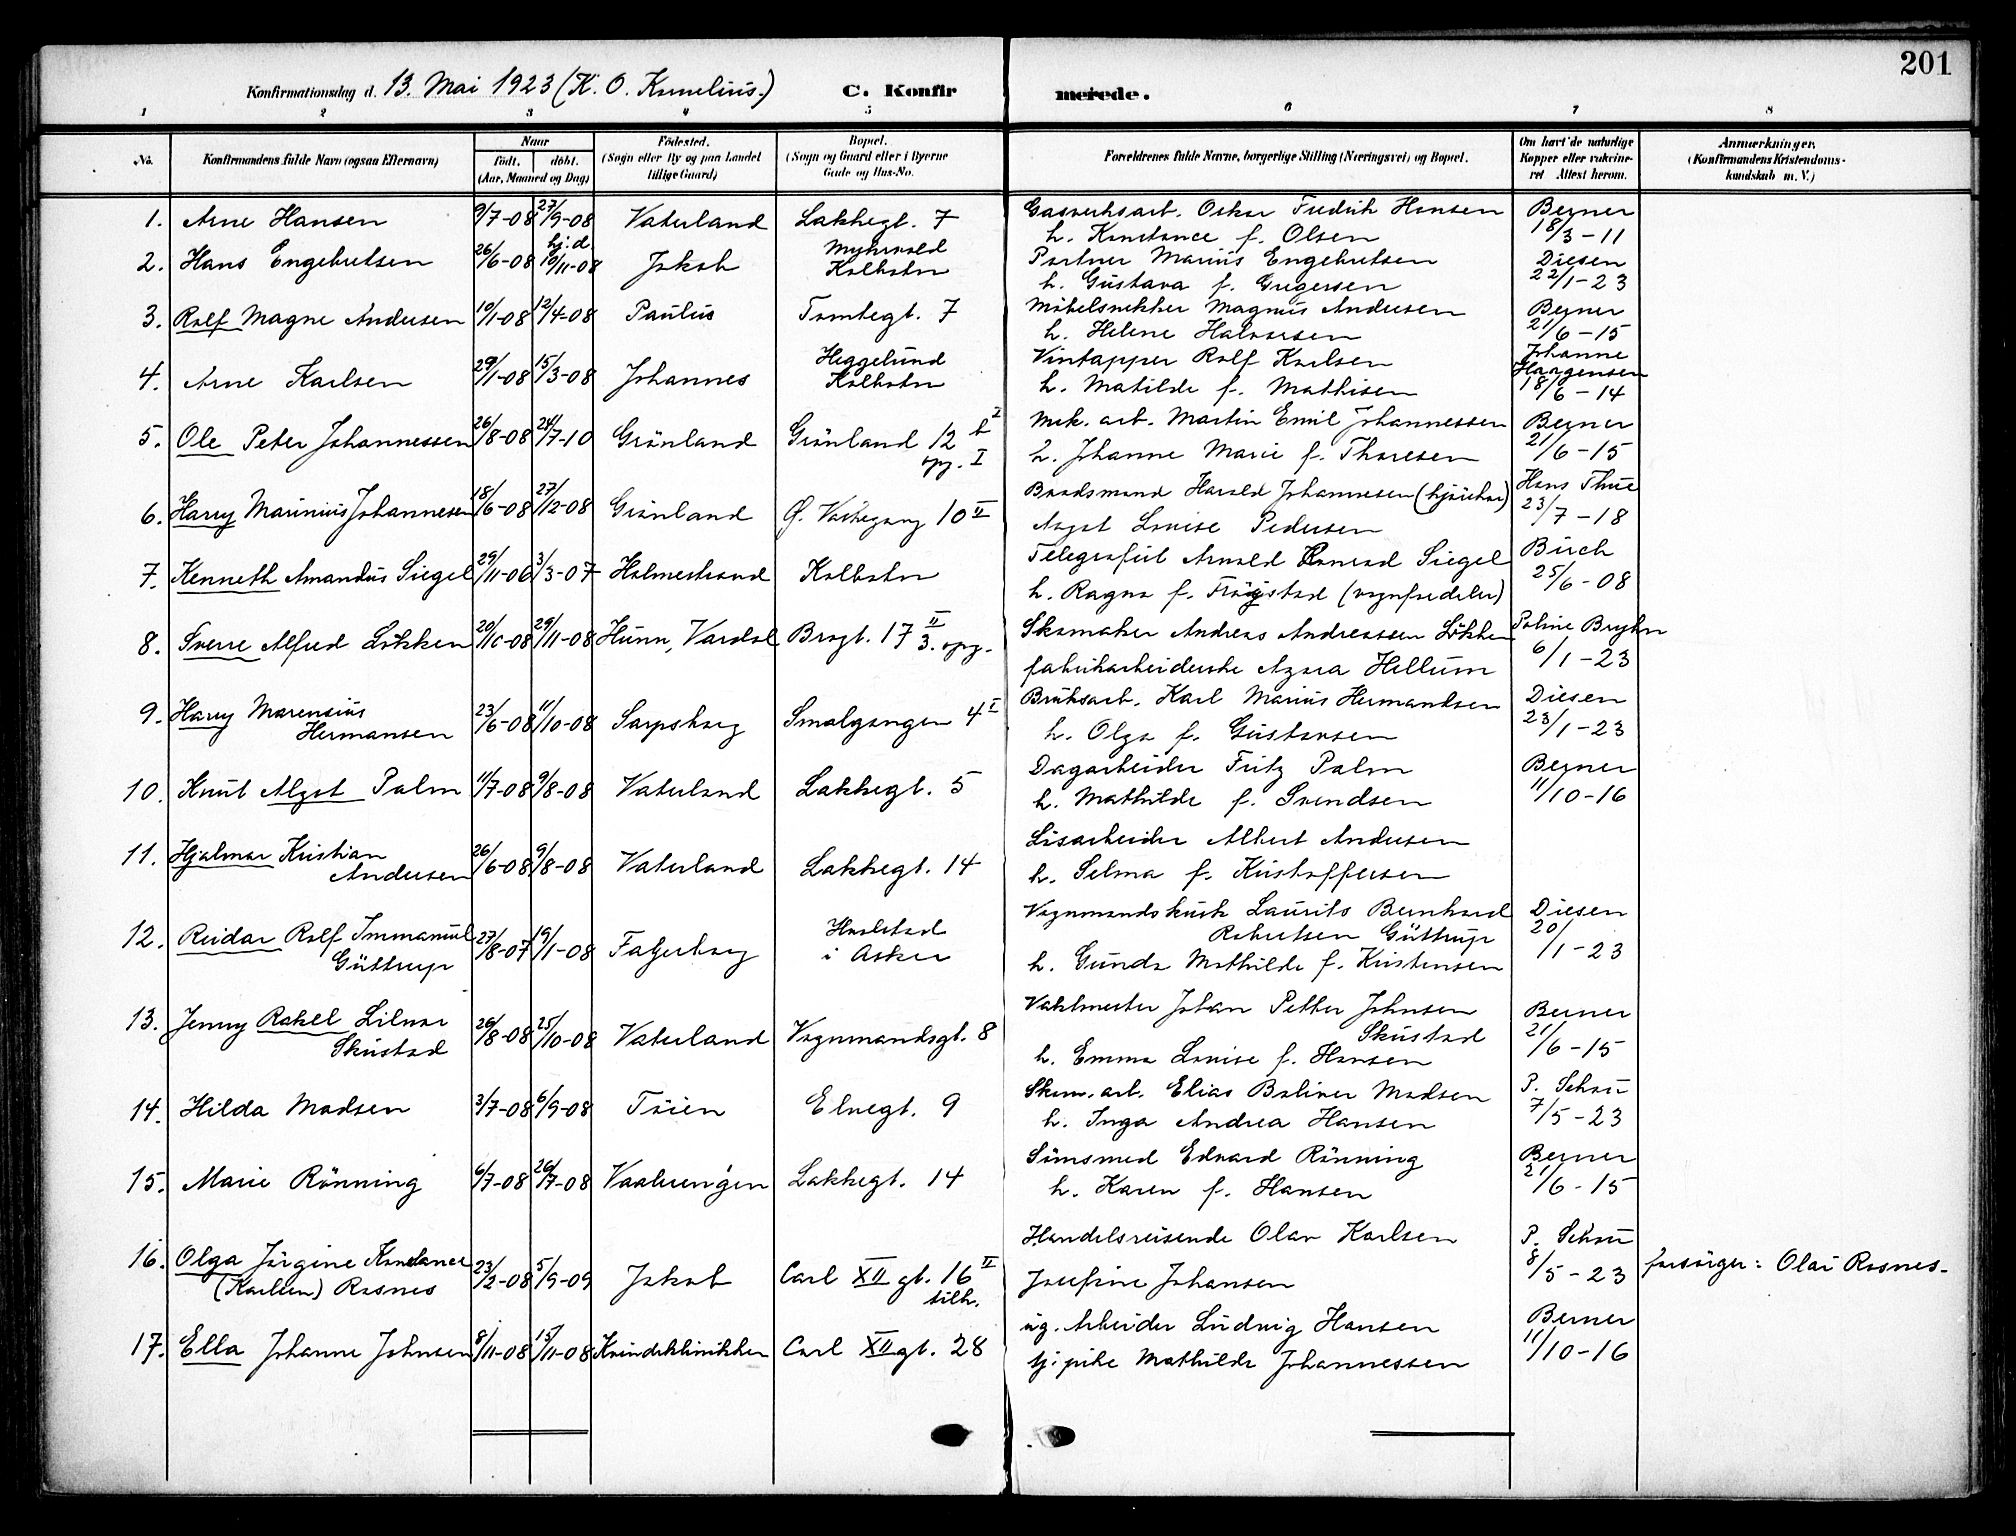 201
Konfirmationsdag d. 13. Mai 1923 (K. O. Kornelius.) C. Konfirmerede.
1 2 3 4 5 6 7 8
No. Konfirmandens fulde Navn (ogsaa Efternavn) Naar født. døbt. (Aar, Maaned og Dag) Fødested. (Sogn eller By og paa Landet tillige Gaard) Bopæl. (Sogn og Gaard eller i Byerne Gade og Hus-No. Forældrenes fulde Navne, borgerlige Stilling (Næringsvei) og Bopæl. Om havt de naturlige Kopper eller vakcineret Attest herom. Anmærkninger. (Konfirmandens Kristendomskundskab m. V.)
1. Arne Hansen 9/7-08 27/9-08 Vaterland Lakkegt. 7 Gasverksarb. Oskar Fredrik Hansen Berner
h. Konstance f. Olsen 18/3-11
2. Hans Engebretsen 26/6-08 hj.d. 10/11-08 Jakob Myhrvold Kolbotn Portner Marius Engebretsen Diesen
h. Gustava f. Gregersen 22/1-23
3. Rolf Magne Andersen 10/1-08 12/4-08 Paulus Tomtegt. 7 Möbelsnekker Magnus Andersen Berner
h. Helene Halvorsen 21/6-15
4. Arne Karlsen 29/1-08 15/3-08 Johannes Heggelund Kolbotn Vintapper Rolf Karlsen Johanne Haagensen
h. Matilde f. Mathisen 18/6-14
5. Ole Peter Johannessen 26/8-08 24/7-10 Grönland Grönland 12 b I opg. I Mek. arb. Martin Emil Johannessen Berner
h. Johanne Marie f. Thoresen 21/6-15
6. Harry Marinius Johannesen 18/6-08 27/12-08 Grönland Ø. Vaskegang 10 II Baadsmand Harald Johannesen Hans Thue
Aagot Lovise Pedersen 23/7-18
7. Kenneth Amandus Siegel 29/11-06 3/3-07 Holmestrand Kolbotn Telegrafist Arnold Konrad Siegel Birch
h. Ragna f. Frögstad 25/6-08
8. Sverre Alfred Lökken 20/10-08 29/11-08 Hunn, Vardal Brogt. 17 II 3. opg. Skomaker Andreas Andreassen Lökken Poline Bryhn
fabrikarbeiderske Azora Hellum 6/1-23
9. Harry Marensius Hermansen 23/6-08 11/10-08 Sarpsborg Smalgangen 4 I Bruksarb. Karl Marius Hermandsen Diesen
h. Olga f. Gustavsen 23/1-23
10. Knut Algot Palm 11/7-08 9/8-08 Vaterland Lakkegt. 5 Dagarbeider Fritz Palm Berner
h. Mathilde f. Svendsen 11/10-16
11. Hjalmar Kristian Andersen 26/6-08 9/8-08 Vaterland Lakkegt. 14 Lisarbeider Albert Andersen
h. Selma f. Kristoffersen
12. Reidar Rolf Immanuel Güttrup 27/8-07 19/1-08 Fagerborg i Asker Vognmandskusk Laurits Bernhard Diesen
Robertsen Güttrup 20/1-23
h. Gunda Mathilde f. Kristensen
13. Jenny Rakel Lilnor Skustad 26/8-08 25/10-08 Vaterland Vognmandsgt. 8 Vaktmester Johan Petter Johnsen Berner
Skustad 21/6-15
h. Emma Lovise f. Hansen
14. Hilda Madsen 3/7-08 6/9-08 Töien Elvegt. 9 Skom. arb. Elias Boliner Madsen P. Schou
h. Inga Andrea Hansen 7/5-23
15. Marie Rönning 6/7-08 26/7-08 Vaalerengen Lakkegt. 14 Smsmed Edvard Rönning Berner
h. Karen f. Hansen 21/6-15
16. Olga Jörgine Konstance (Karlsen) Rosnes 23/2-08 5/9-09 Jakob Carl XII gt. 16 II tilh. Handelsreisende Olav Karlsen P. Schou
Josefine Johansen 8/5-23 forsörger: Olai Rosnes.
17. Ella Johanne Johnsen 8/11-08 15/11-08 Kvindeklinikken Carl XII gt. 28 ug. Arbeider Ludvig Hansen Berner
tj. pike Mathilde Johannessen 11/10-16